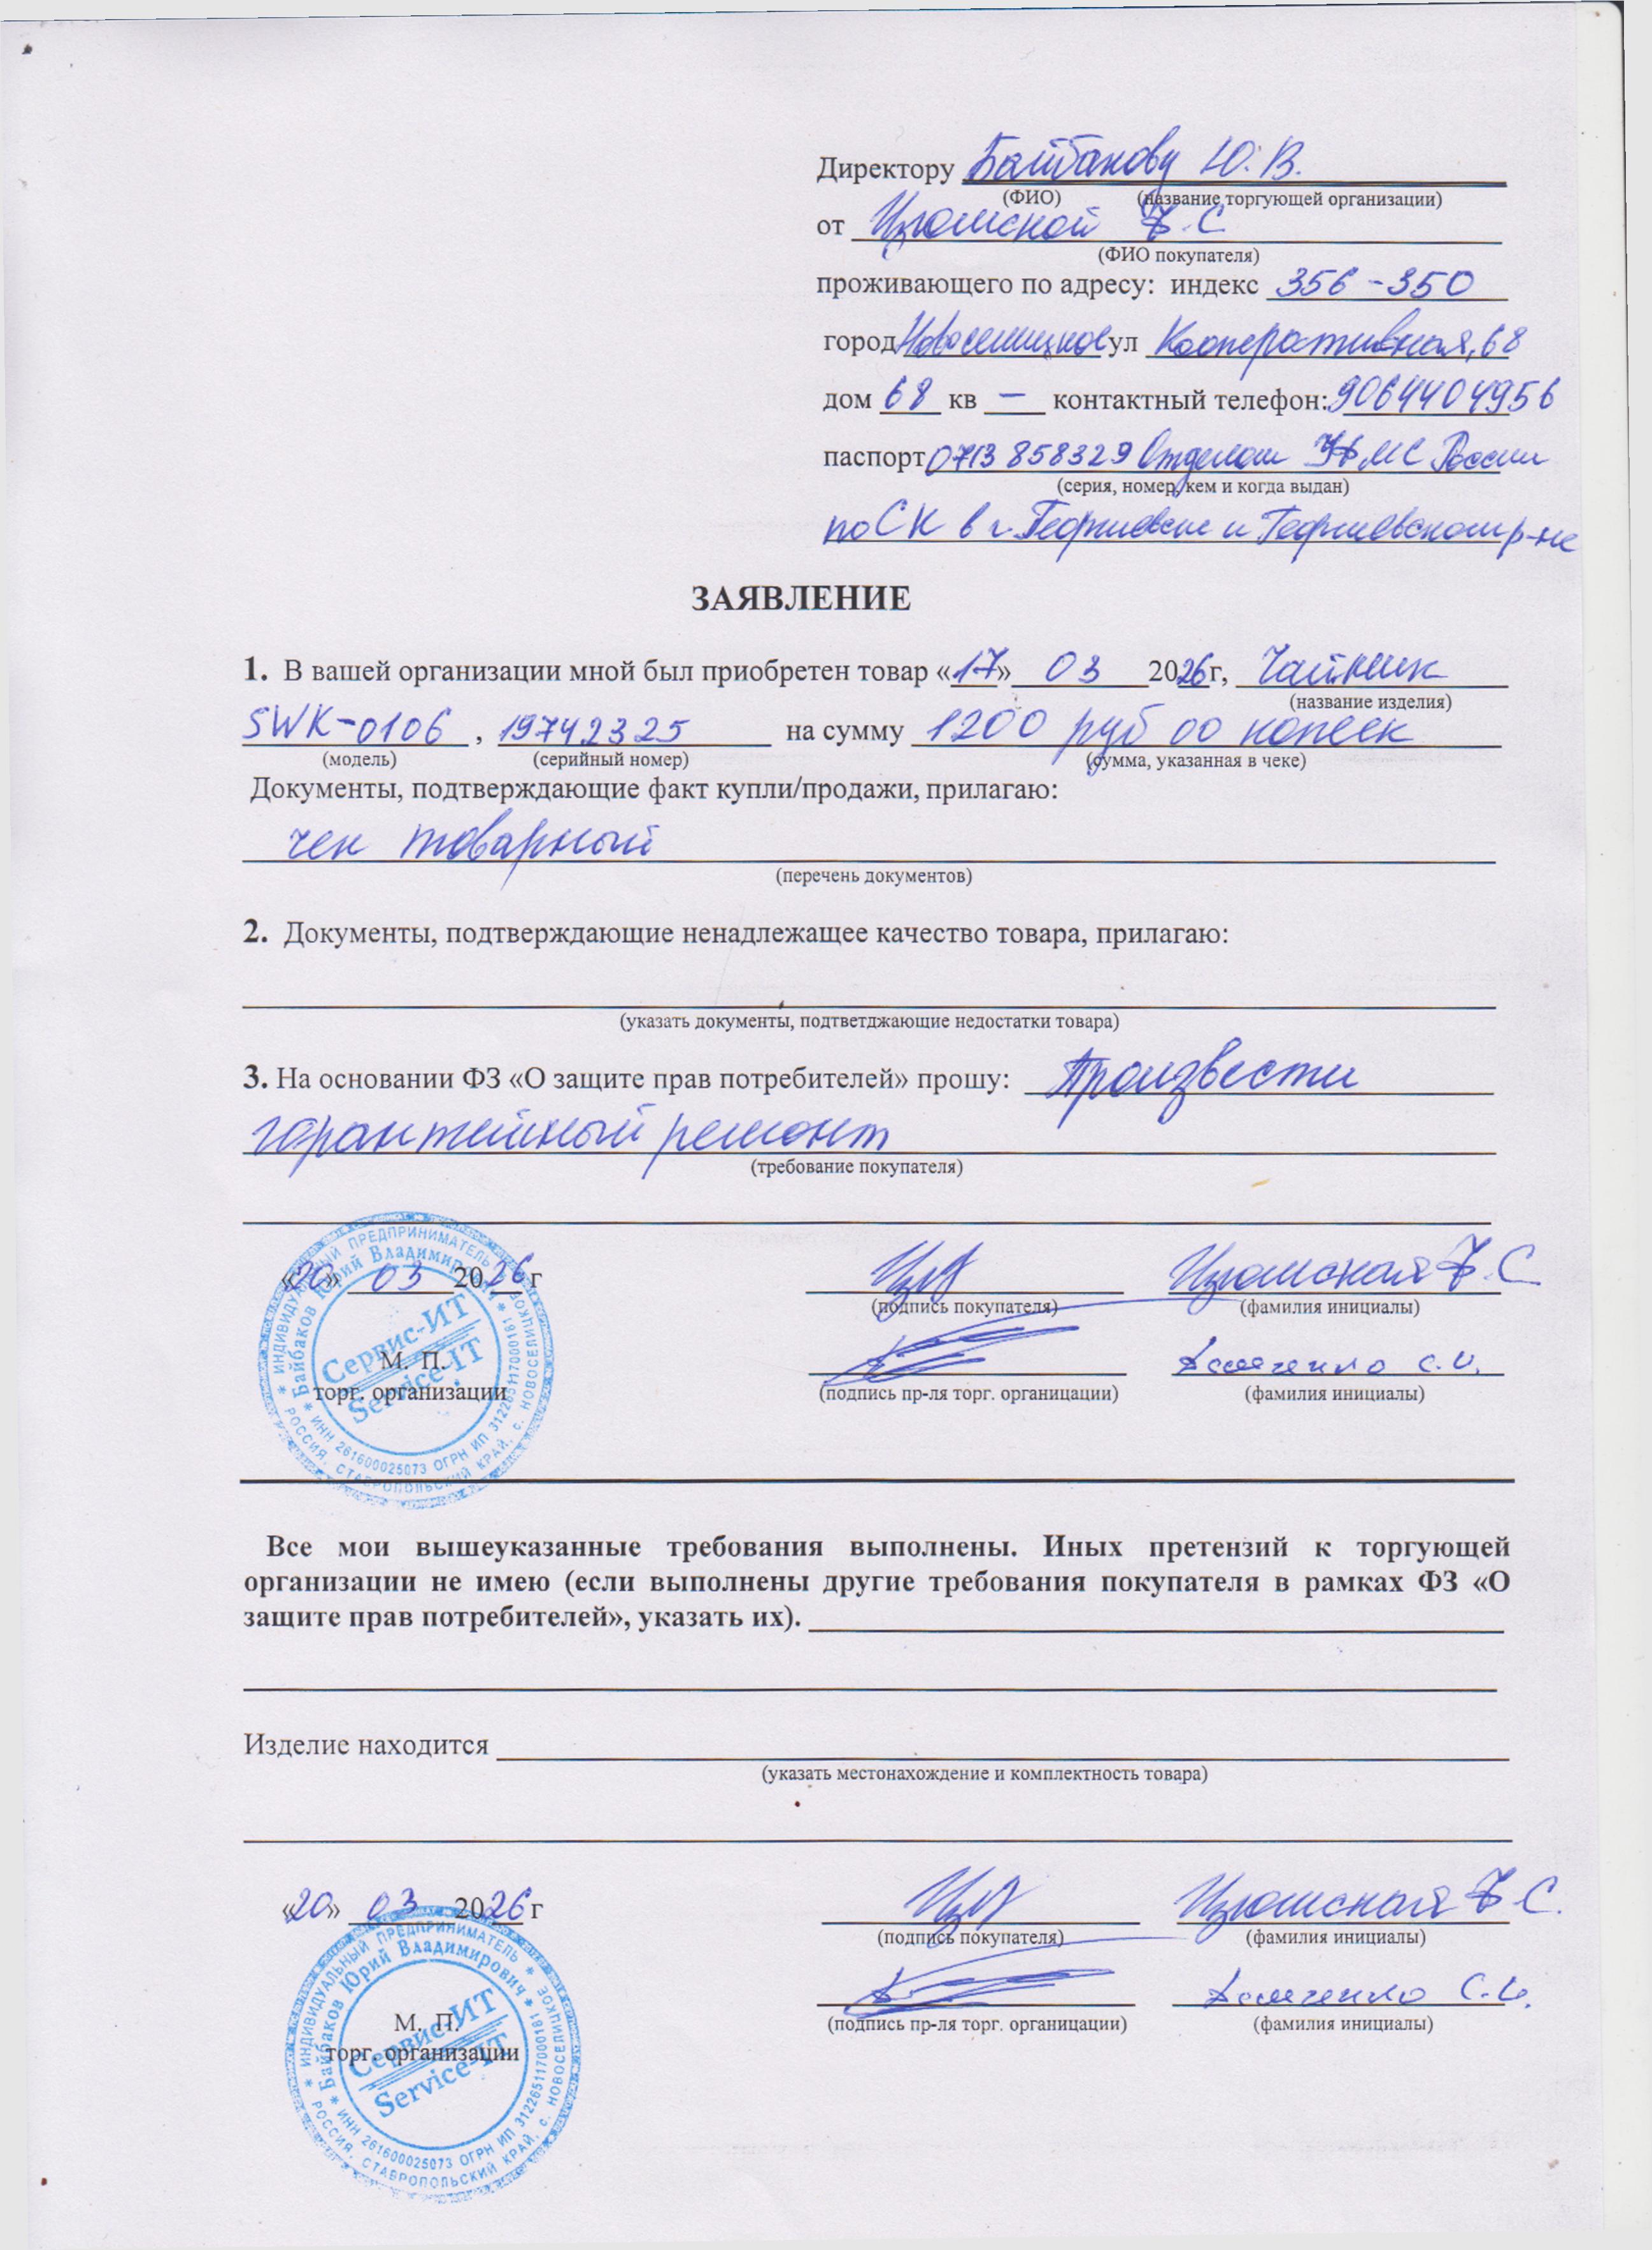 Директору Байбакову Ю. В.
(ФИО) (название торгующей организации)
от Ф.С
(ФИО покупателя)
проживающего по адресу: индекс 356-350
город Новоселицкое ул Кооперативная, 68
дом 68 кв — контактный телефон: 9064404956
паспорт 0713 858329 Отделом УФМС России
(серия, номер, кем и когда выдан)
по СК в г. Георгиевске и Георгиевском р-не
ЗАЯВЛЕНИЕ
1. В вашей организации мной был приобретен товар «17» 03 2026г, Чайник
(название изделия)
SWK-0106 , 19742325 на сумму 1200 руб 00 копеек
(модель) (серийный номер) (сумма, указанная в чеке)
Документы, подтверждающие факт купли/продажи, прилагаю:
чек товарный
(перечень документов)
2. Документы, подтверждающие ненадлежащее качество товара, прилагаю:
(указать документы, подтветджающие недостатки товара)
3. На основании ФЗ «О защите прав потребителей» прошу: произвести
гарантийный ремонт
(требование покупателя)
«20» 03 2026 г Ф.С
(подпись покупателя) (фамилия инициалы)
М. П. С.И.
торг. организации (подпись пр-ля торг. органицации) (фамилия инициалы)
* ИНДИВИДУАЛЬНЫЙ ПРЕДПРИНИМАТЕЛЬ * РОССИЯ, СТАВРОПОЛЬСКИЙ КРАЙ, с. НОВОСЕЛИЦКОЕ
* Байбаков Юрий Владимирович * ИНН 261600025073 ОГРН ИП 312265117000161
Сервис-ИТ
Service-IT
Все мои вышеуказанные требования выполнены. Иных претензий к торгующей
организации не имею (если выполнены другие требования покупателя в рамках ФЗ «О
защите прав потребителей», указать их).
Изделие находится
(указать местонахождение и комплектность товара)
«20» 03 2026 г Ф.С.
(подпись покупателя) (фамилия инициалы)
М. П. С.И.
торг. организации (подпись пр-ля торг. органицации) (фамилия инициалы)
* ИНДИВИДУАЛЬНЫЙ ПРЕДПРИНИМАТЕЛЬ * РОССИЯ, СТАВРОПОЛЬСКИЙ КРАЙ, с. НОВОСЕЛИЦКОЕ
* Байбаков Юрий Владимирович * ИНН 261600025073 ОГРН ИП 312265117000161
Сервис-ИТ
Service-IT